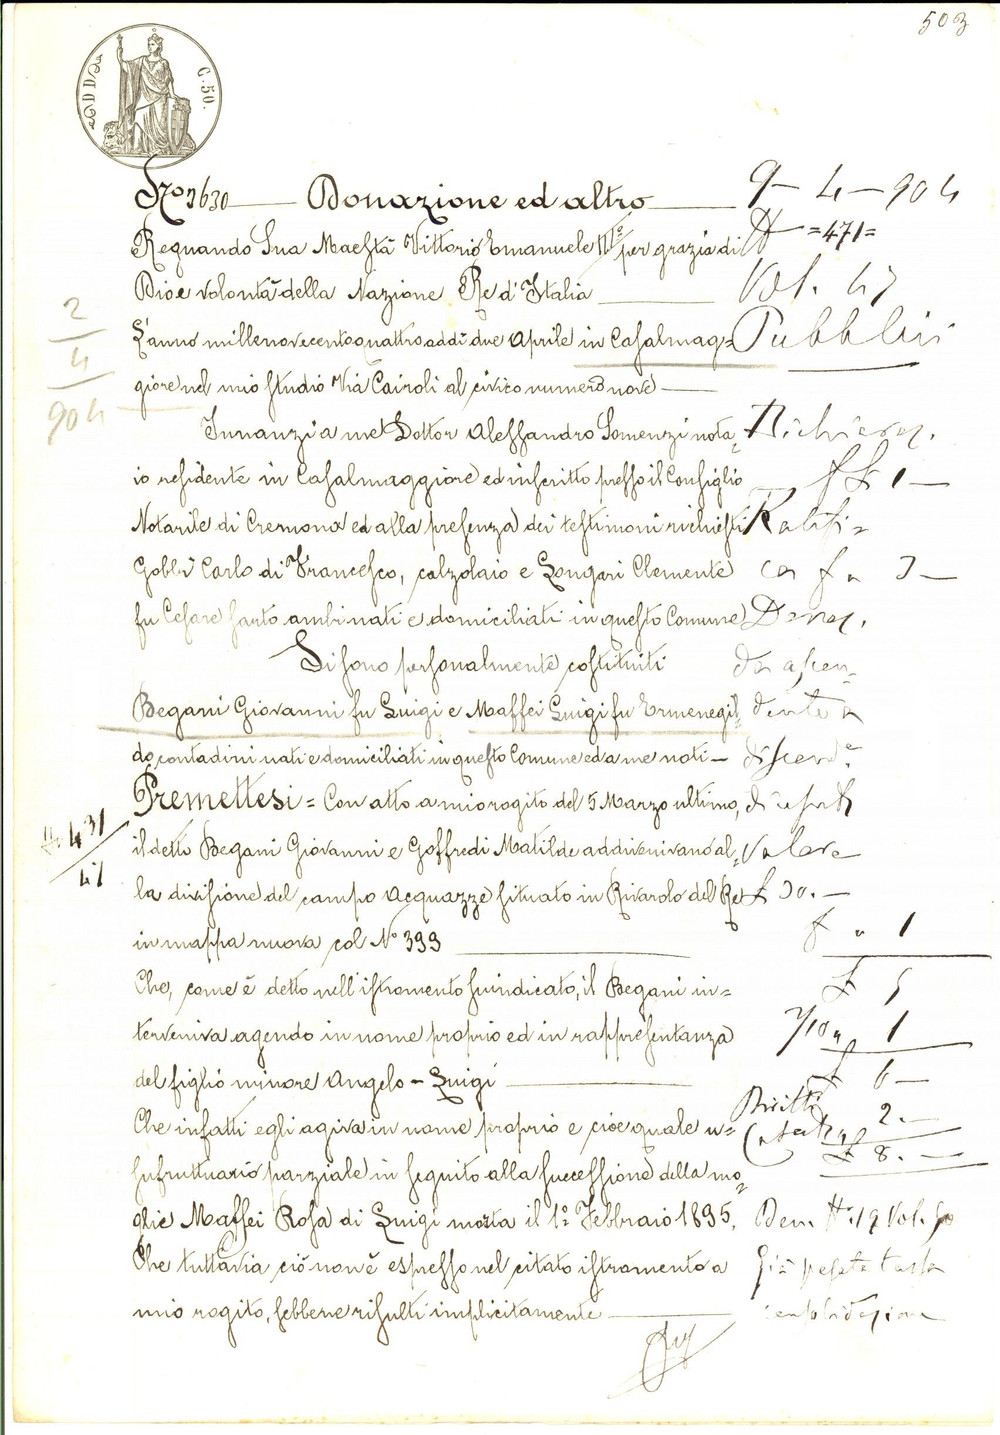 503
C. 50.
No 3630 Donazione ed altro
Regnando Sua Maestà Vittorio Emanuele III° per grazia di
Dio e volontà della Nazione Re d'Italia
L'anno millenovecentoquattro addì due Aprile in Casalmag=
giore nel mio studio Via Cairoli al civico numero nove
Innanzi a me Dottor Alessandro Somenzi nota=
io residente in Casalmaggiore ed inscritto presso il Consiglio
Notarile di Cremona ed alla presenza dei testimoni richiesti
Gobbi Carlo di Francesco, calzolaio e Longari Clemente
fu Cesare sarto ambi nati e domiciliati in questo Comune
Si sono personalmente costituiti
Begani Giovanni fu Luigi e Maffei Luigi fu Ermenegil=
do, contadini nati e domiciliati in questo Comune ed a me noti —
Premettesi = Con atto a mio rogito del 5 Marzo ultimo,
il detto Begani Giovanni e Goffredi Matilde addivenivano al=
la divisione del campo Acquazze situato in Rivarolo del Re
in mappa nuova col N° 393
Che, come è detto nell'istromento suindicato, il Begani in=
terveniva agendo in nome proprio ed in rappresentanza
del figlio minore Angelo - Luigi
Che infatti egli agiva in nome proprio e cioè quale u=
sufruttuario parziale in seguito alla successione della mo=
glie Maffei Rosa di Luigi morta il 1° Febbraio 1895,
Che tuttavia ciò non è espresso nel citato istromento a
mio rogito, sebbene risulti implicitamente
9 - 4 - 904
N =471=
Vol. 47
Pubblici
Dichiaraz.
£ 1 —
Ratifi=
ca
Donaz.
da ascen=
dente a
discend.e
valore
£ 30. —
1
£ 5
1
£ 6 —
Diritti
2. —
£ 8. —
Den. N. 19 Vol. 50
consolidazione
2
4
904
N. 431
47